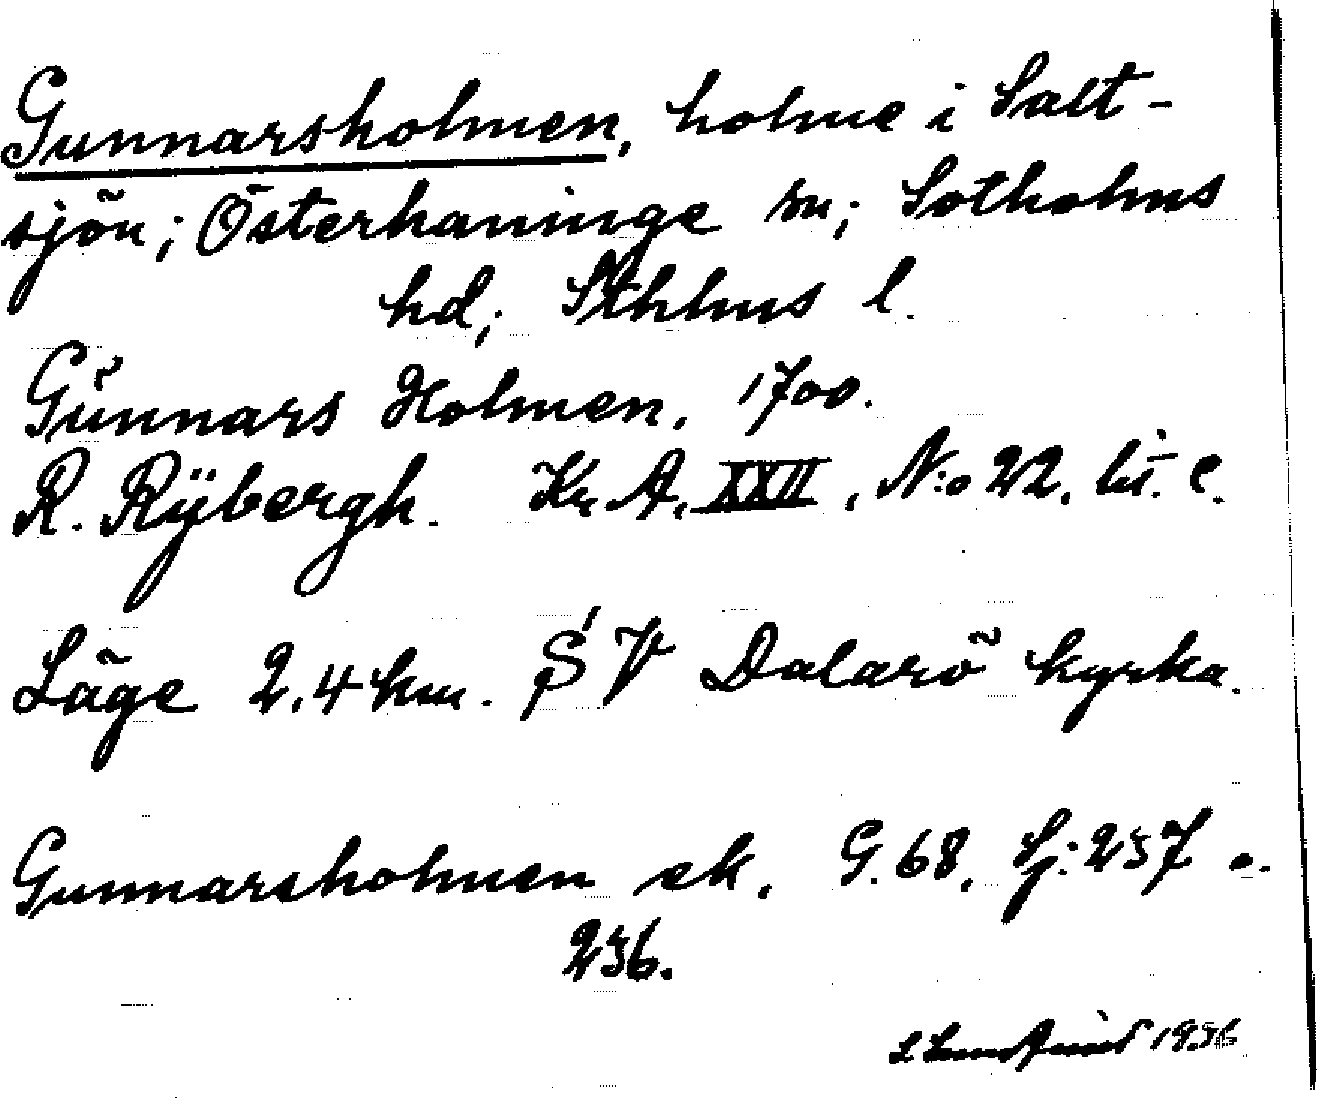 Gunnarsholmen, holme i Salt-
sjön; Österhaninge sn; Sotholms
hd; Sthlms l.
Gŭnnars Holmen. 1700.
R. Rÿbergh. Kr. A. XXII, N:o 22. lit. c.
Läge 2.4 km. S V Dalarö kyrka.
Gunnarsholmen ek. G. 68. Sj: 257 o.
256.
1936